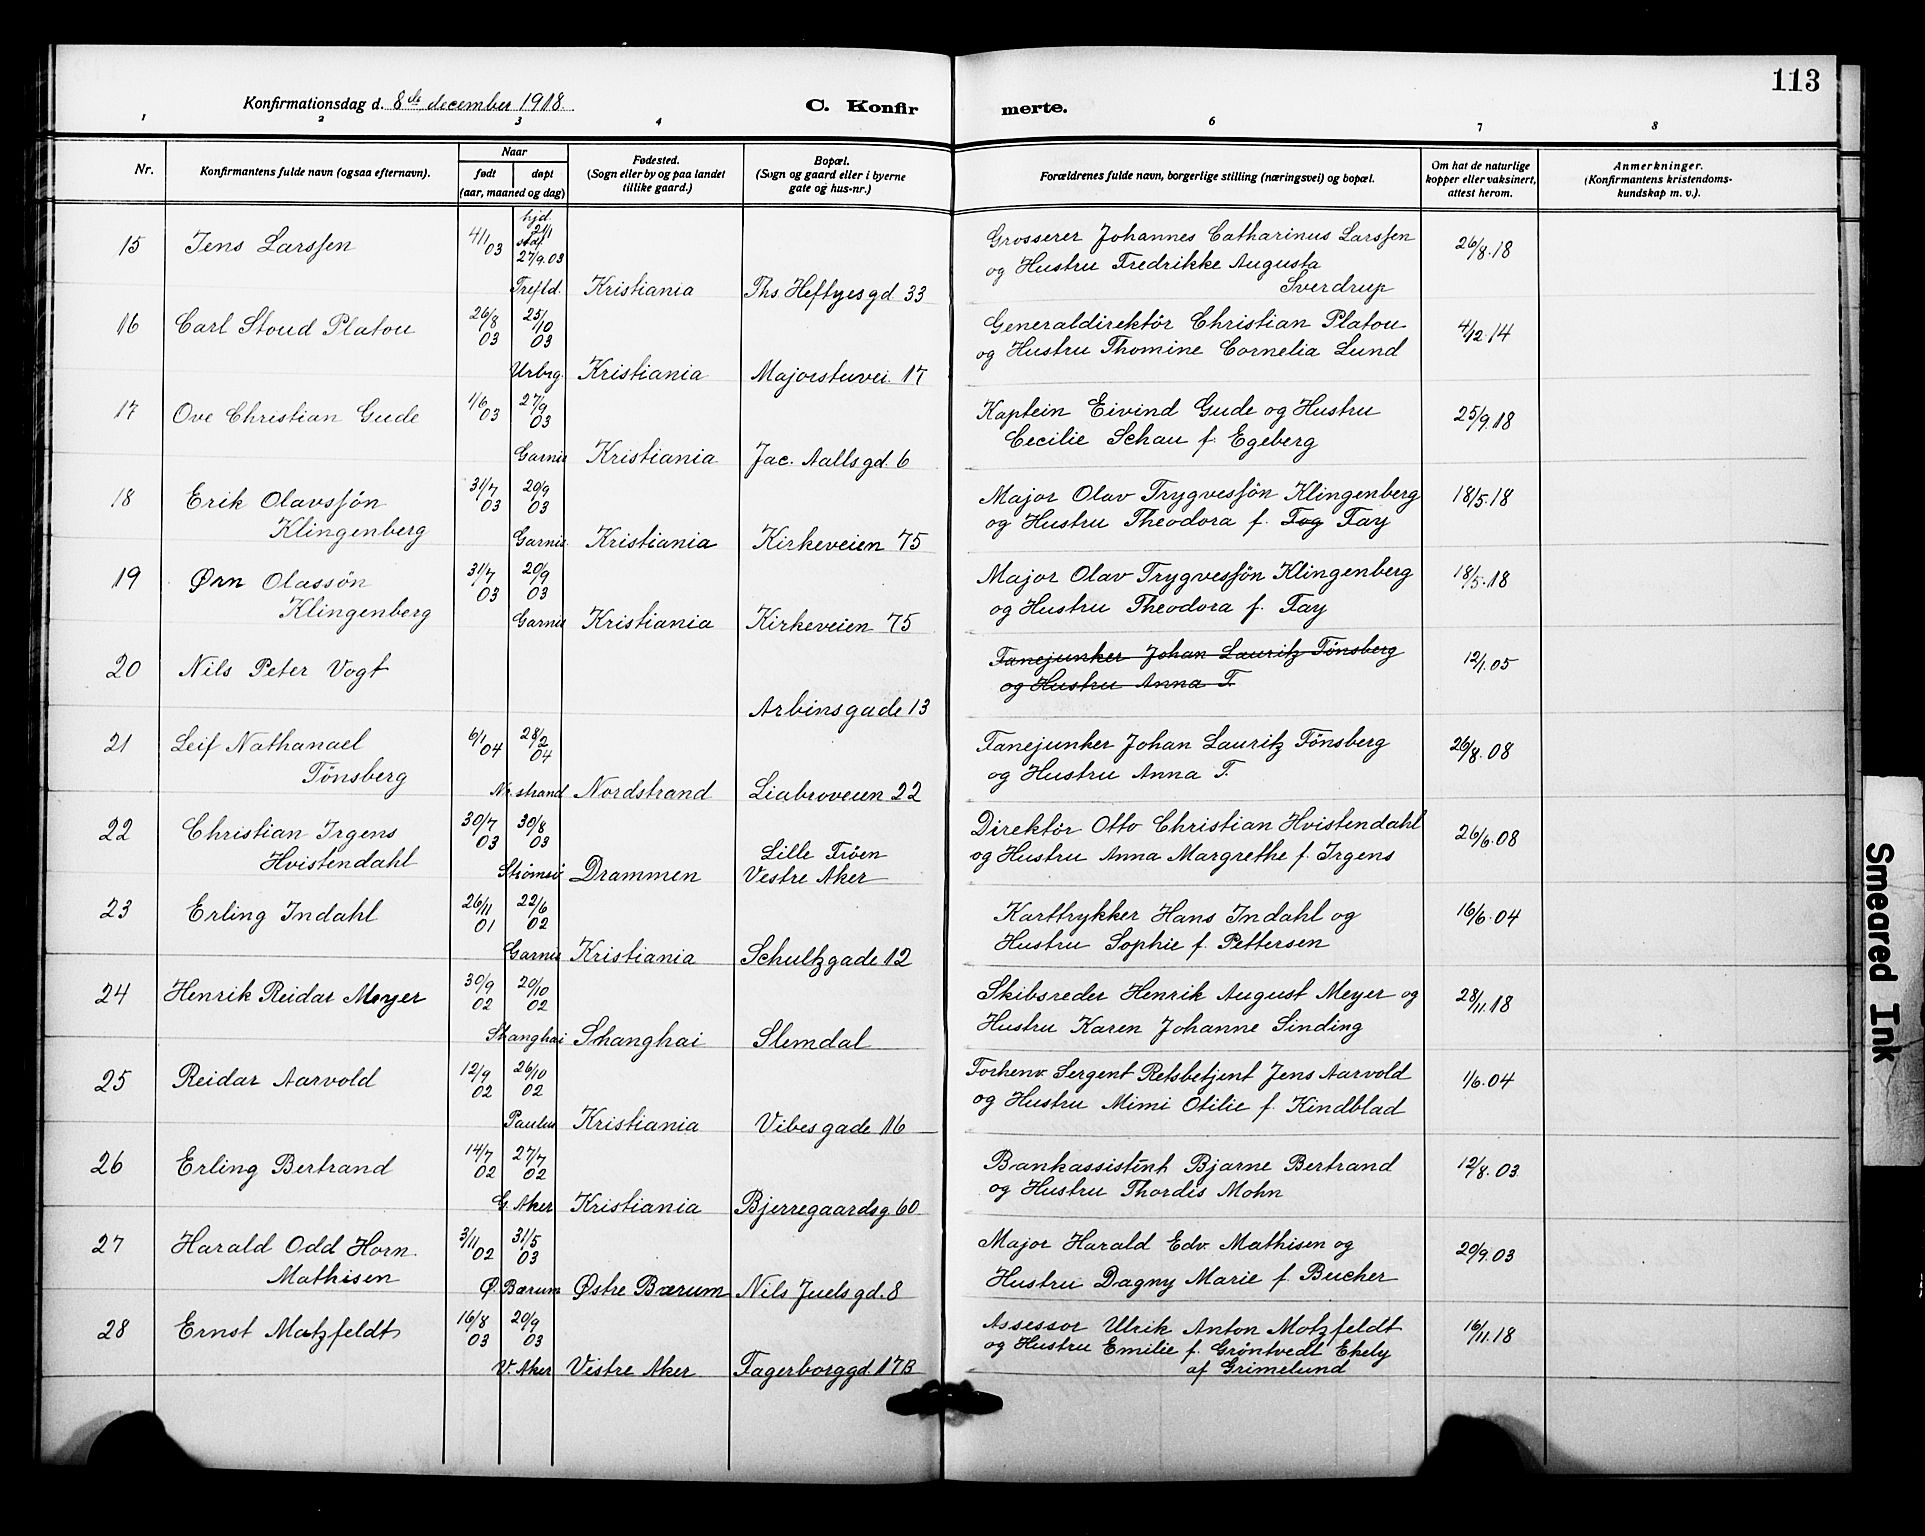 113
Konfirmationsdag d. 8de december 1918.
C. Konfirmerte.
1 2 3 4 6 7 8
Nr.
Konfirmantens fulde navn (ogsaa efternavn).
Naar
født døpt
(aar, maaned og dag)
Fødested.
(Sogn eller by og paa landet
tillike gaard.)
Bopæl.
(Sogn og gaard eller i byerne
gate og hus-nr.)
Forældrenes fulde navn, borgerlige stilling (næringsvei) og bopæl.
Om hat de naturlige
kopper eller vaksinert,
attest herom.
Anmerkninger.
(Konfirmantens kristendoms-
kundskap m. v.).
15 Jens Larssen 4/1 03 hjd. 21/1 stdf. 27/9.03 Grosserer Johannes Catharinus Larssen 26/8.18
og Hustru Fredrikke Augusta
Trefld. Kristiania Ths. Heftyesgd 33 Sverdrup
16 Carl Stoud Platou 26/8 03 25/10 03 Generaldirektör Christian Platou 4/12.14
og Hustru Thomine Cornelia Lund
Urbrg. Kristiania Majorstuvei. 17
17 Ove Christian Gude 1/6 03 27/9 03 Kaptein Eivind Gude og Hustru 25/9.18
Cecilie Schau f. Egeberg
Garnis Kristiania Jac. Aallsgd. 6
18 Erik Olavssön 31/7 03 20/9 03 Major Olav Trygvessön Klingenberg 18/5.18
Klingenberg og Hustru Theodora f. Fog Fay
Garnis. Kristiania Kirkeveien 75
19 Ørn Olassön 31/7 03 20/9 03 Major Olav Trygvessön Klingenberg 18/5.18
Klingenberg og Hustru Theodora f. Fay
Garnis Kristiania Kirkeveien 75
20 Nils Peter Vogt Fanejunker Johan Lauritz Tönsberg 12/1.05
og Hustru Anna T.
Arbinsgade 13
21 Leif Nathanael 6/1 04 28/2 04 Fanejunker Johan Lauritz Tönsberg 26/8.08
Tönsberg og Hustru Anna T.
Nr. strand Nordstrand Liabroveien 22
22 Christian Irgens 30/7 03 30/8 03 Direktör Otto Christian Hvistendahl 26/6.08
Hvistendahl Lille Fröen og Hustru Anna Margrethe f. Irgens
Strömsö Drammen Vestre Aker
23 Erling Indahl 26/11 01 22/6 02 Karttrykker Hans Indahl og 16/6.04
Hustru Sophie f. Pettersen
Garnis Kristiania Schultzgade 12
24 Henrik Reidar Meyer 30/9 02 20/10 02 Skibsreder Henrik August Meyer og 28/11.18
Hustru Karen Johanne Sinding
Shanghai Shanghai Slemdal
25 Reidar Aarvold 12/9 02 26/10 02 Forhenv. Sergent Retsbetjent Jens Aarvold 1/6.04
og Hustru Mimi Otilie f. Kindblad
Paulus Kristiania Vibesgade 16
26 Erling Bertrand 14/7 02 27/7 02 Bankassistent Bjarne Bertrand 12/8.03
og Hustru Thordis Mohn
G. Aker Kristiania Bjerregaardsg. 60
27 Harald Odd Horn 3/11 02 31/5 03 Major Harald Edv. Mathisen og 20/9.03
Mathisen Hustru Dagny Marie f. Bucher
Ø. Bærum Østre Bærum Nils Juelsgd. 8
28 Ernst Motzfeldt 16/8 03 20/9 03 Assessor Ulrik Anton Motzfeldt 16/11.18
og Hustru Emilie f. Gröntvedt Ekely
V. Aker Vestre Aker Fagerborggd. 17B af Grimelund
Smeared Ink